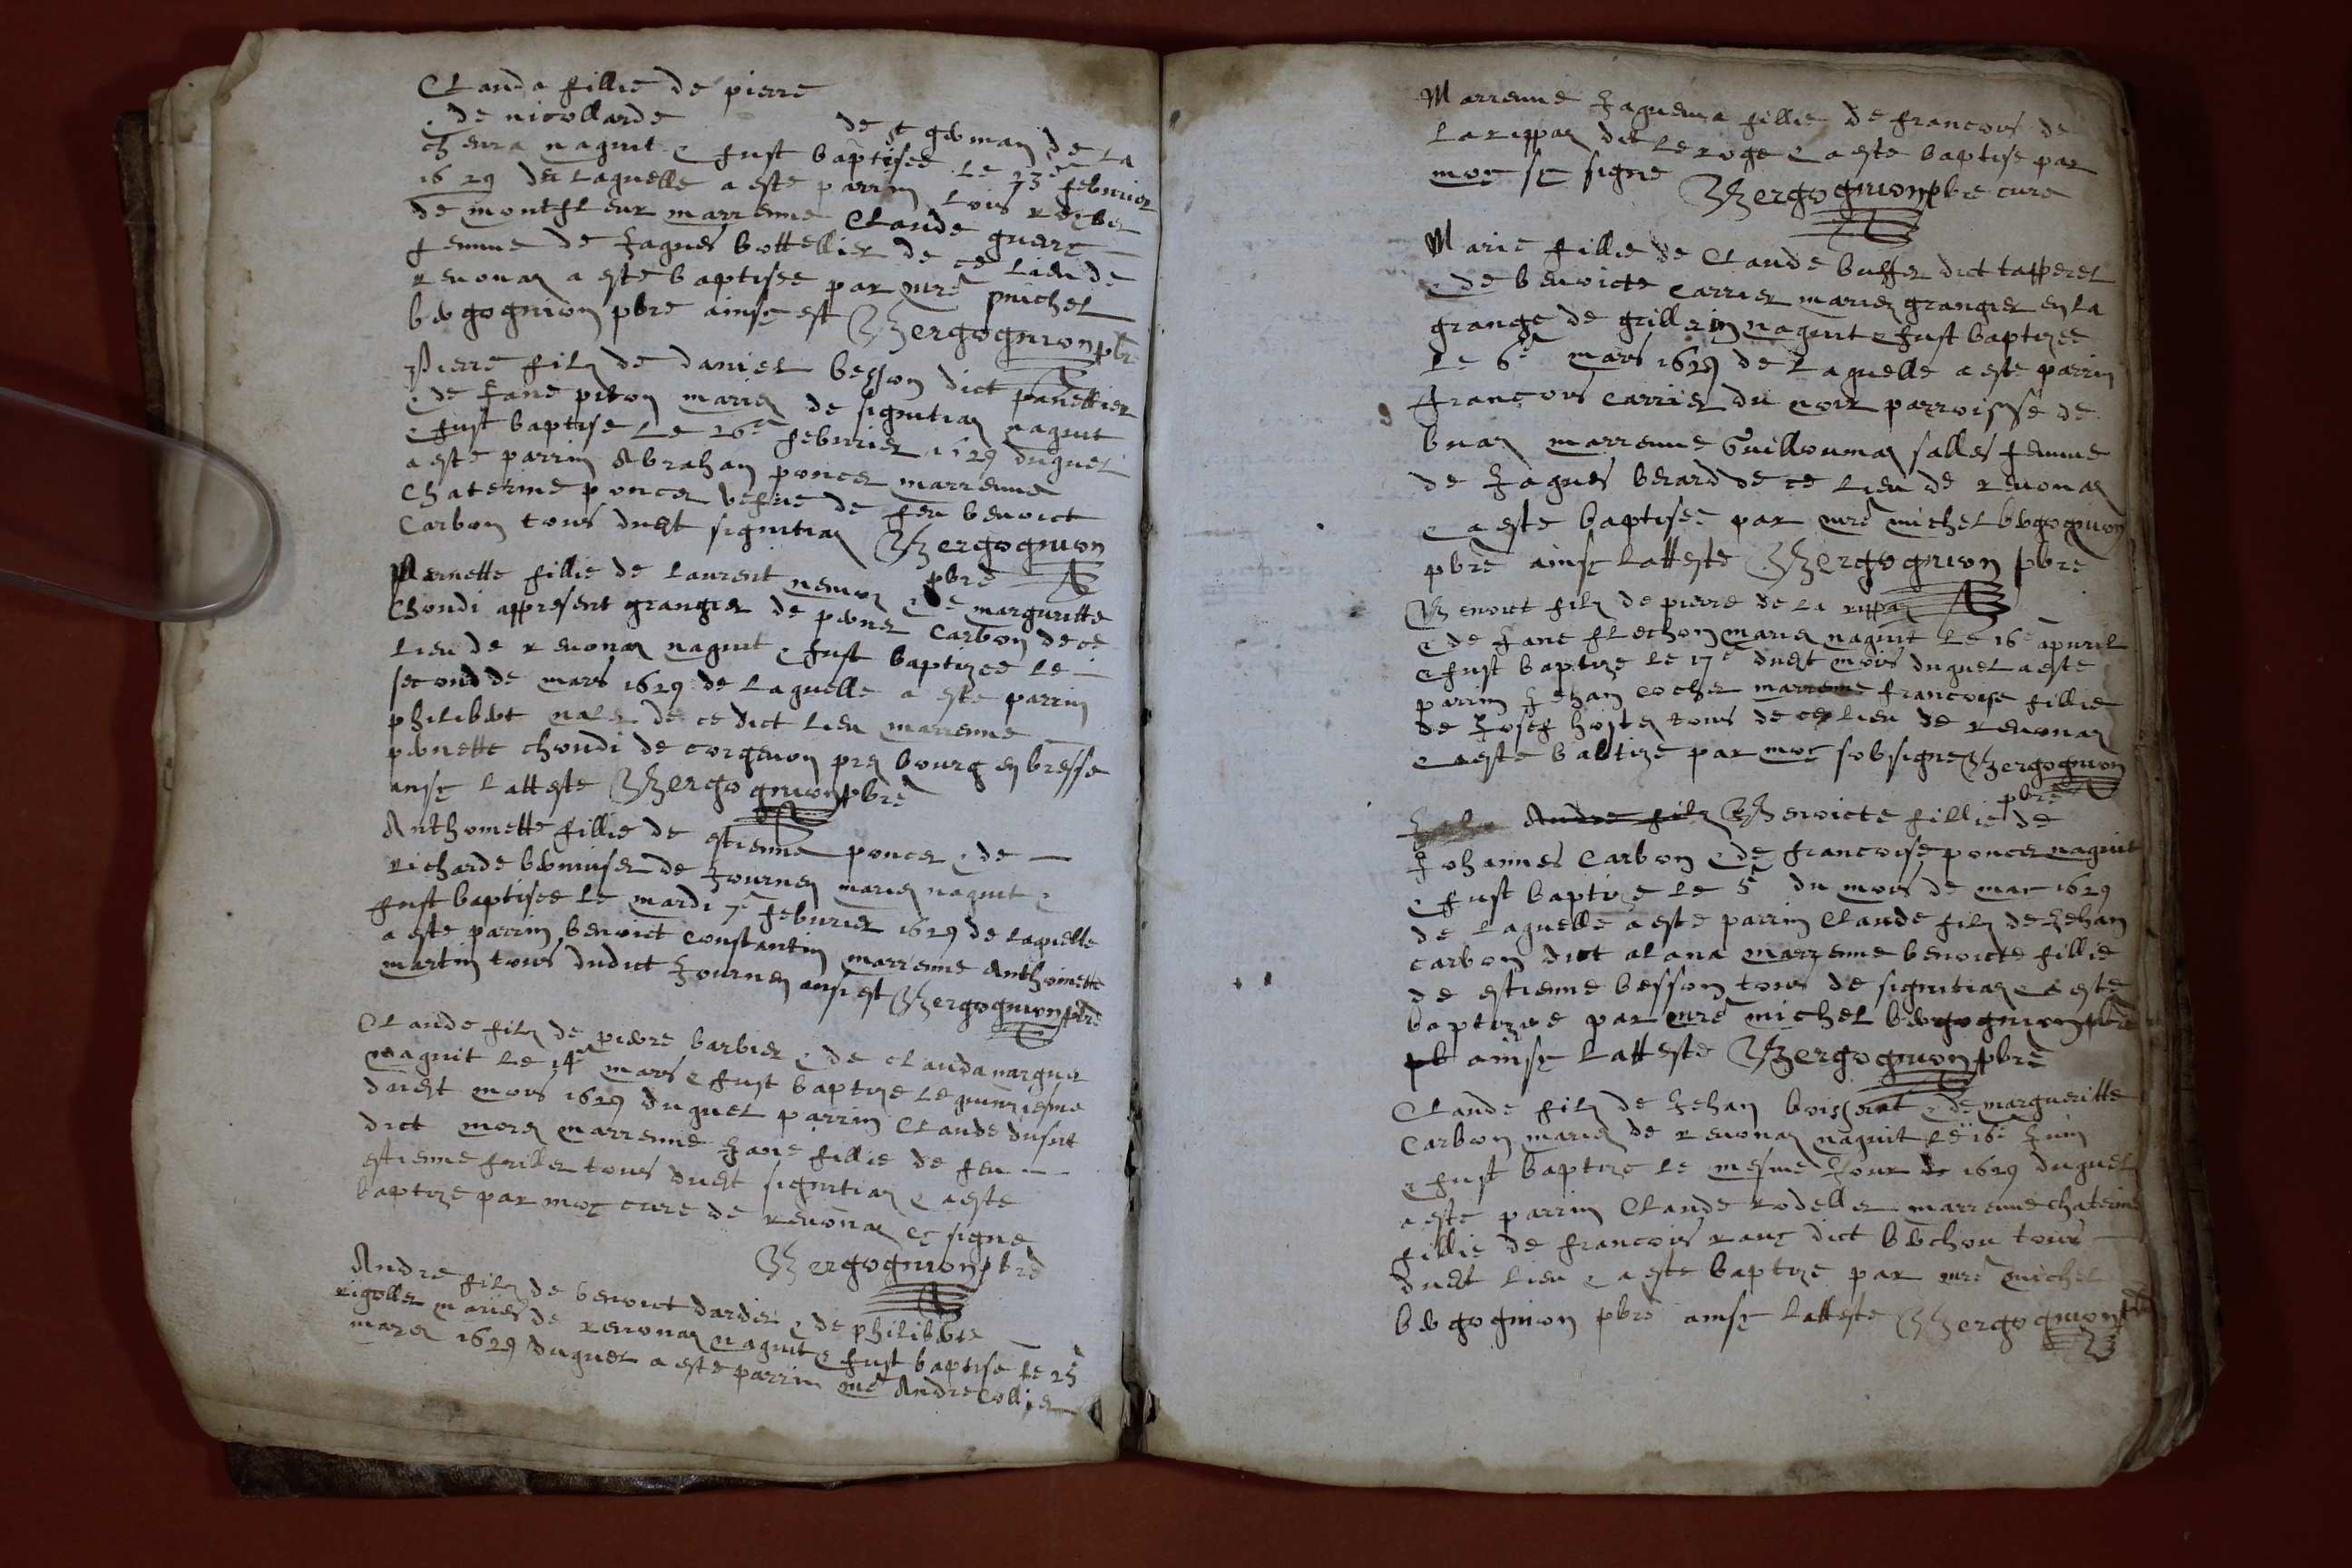 Clauda fillie de pierre
& de nicollarde de st germain de la
cheura naquit & fust baptisee le 23e febvrier
1629 de laquelle a este parrin lois
de montfleur marrenne Claude guere
femme de Jaques bottellier de ce lieu de
revonas a este baptisee par mre michel
bergognion pbre ainsy est Bergognion pbre
Pierre filz de daniel besson dict panettier
& de Jane piton mariez de signitiaz naquit
& fust baptise le 26e febvrier 1629 duquel
a este parrin Abraham poncet marrenne
Chaterine poncet vefve de feu benoict
Carbon tous dudt signitiaz Bergognion
pbre
Pernette fillie de laurent & de margueritte
Chondi appresent grangier de pernet Carbon de ce
lieu de revonaz naquit & fust baptizee le
second de mars 1629 de laquelle a este parrin
philibert de ce dict lieu marrenne
pernette chondi de corgenon prez bourg en bresse
ainsy latteste Bergognion pbre
Anthoinette fillie de estienne poncet & de
richarde de Journaz mariez naquit &
fust baptisee le mardi 7e febvrier 1629 de laquelle
a este parrin benoict constantin marrenne Anthoinette
martin tous dudict Journaz ainsi est Bergognion pbre
Claude filz de pierre barbier & de clauda
naquit le 14e mars & fust baptize le quinziesme
dudt mois 1629 duquel parrin Claude
dict morez marrenne Jane fillie de feu
estienne tous dudt signitiaz & a este
baptize par moy cure de revonaz & signe
Bergognion pbre
Andre filz de benoict dardier & de philiberte
rigollet mariez de revonaz naquit & fust baptise le 25e
mars 1629 duquel a este parrin me Andre Collier
Marrenne Jaquema fillie de francois de
la rippaz dit le roge & a este baptise par
moy se signe Bergognion pbre cure
Marie fillie de Claude buffet dict tapperel
& de benoicte carrier mariez grangier en la
grange de grillerin naquit & fust baptizee
le 6e mars 1629 de laquelle a este parrin
francois carrier du noir parroisse de
buaz marrenne Guilloumaz salles femme
de Jaques berard de ce lieu de revonaz
& a este baptisee par mre michel bergognion
pbre ainsy latteste Bergognion pbre
Benoict filz de pierre de la rippaz
& de Jane flechon mariez naquit le 16e apvril
& fust baptize le 17e dudt mois duquel a este
parrin Jehan cochet marrenne francoise fillie
de Josef tous de ce lieu de revonaz
& a este babtize par moy sobsigne Bergognion
pbre
Andre filz Benoicte fillie de
Johannes Carbon & de francoise poncet naquit
& fust baptize le 5e du mois de mar 1629
de laquelle a este parrin Claude filz de Jehan
carbon dict alana marrenne benoicte fillie
de estienne besson tous de signitiaz & a este
baptizee par mre michel bergognion pbre
pb ainsy latteste Bergognion pbre
Claude filz de Jehan boisserat & de margueritte
Carbon mariez de revonaz naquit le 16e Juin
& fust baptize le mesme Jour de 1629 duquel
a este parrin Claude rodellet marrenne chaterine
fillie de francois ravy dict berchou tous
dudt lieu & a este baptize par mre michel
bergognion pbre ainsy latteste Bergognion pbre